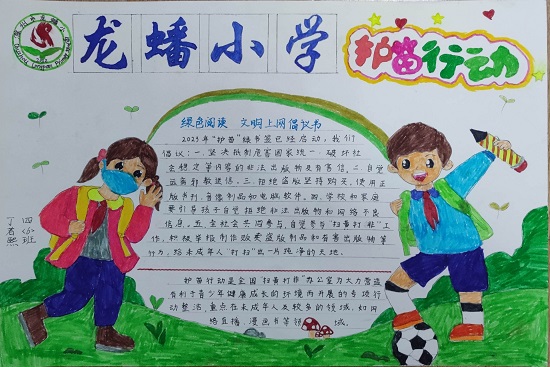 龙蟠小学
护苗行动
绿色阅读 文明上网倡议书
2023年"护苗"绿书签已经启动,我们
倡议:一.坚决抵制危害国家统一.破坏社
会稳定等内容的非法出版物及有害信.二.自觉
远离邪教迷信.三.拒绝盗版坚持购买.使用正
版书刊.音像制品和电脑软件.四.学校和家庭
要引导孩子自觉拒绝非法出版物和网络不良
信息.五.全社会共同参与.自觉参与"扫黄打非"工
作.积极举报制作贩卖盗版制品和有害出版物等
行为.给未成年人"打扫"出一片纯净的天地.
护苗行动是全国"扫黄打非"办公室为大力营造
有利于青少年健康成长的环境而开展的专项行
动整治.重点在未成年人较多的领域.如网
络直播.漫画书等领域.
四(6)班
丁若熙